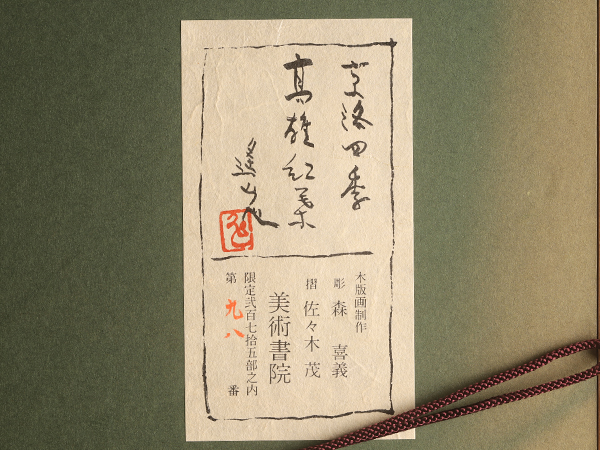 京洛四季
高雄紅葉
遙邨
木版画制作
彫 森 喜義
摺 佐々木 茂
美術書院
限定弐百七拾五部之内
第 九八 番